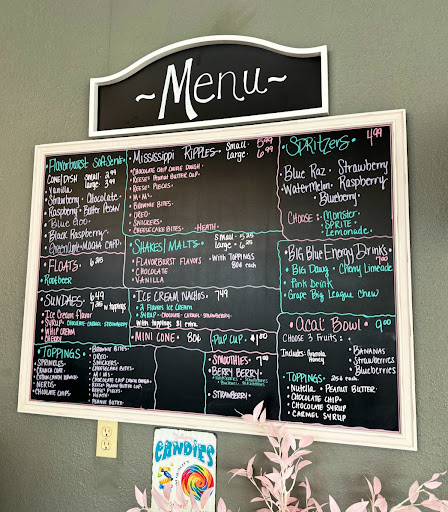 ~Menu~
Flavorburst Soft Serve
CONE/DISH small 2.99
Vanilla large 3.99
Strawberry · Chocolate
Raspberry · Butter Pecan
Blue Goo
Black Raspberry
· FLOATS · 6.25
ROOTBEER
· SUNDAES · 6.49
7.25 w/ toppings
Ice Cream flavor
SYRUP - CHOCOLATE · CARAMEL · STRAWBERRY
WHIP CREAM
CHERRY
· TOPPINGS ·
SPRINKLES
CRUNCH COAT
COTTON CANDY CRUNCH
NERDS
CHOCOLATE CHIPS
BROWNIE BITES
OREO
SNICKERS
CHEESECAKE BITES
M · M'S
CHOCOLATE CHIP COOKIE DOUGH
REESE'S PEANUT BUTTER CUP
REESE'S PIECES
HEATH
PEANUT BUTTER
· Mississippi RIPPLES · Small 5.99
large 6.99
· CHOCOLATE CHIP COOKIE DOUGH
· REESE'S PEANUT BUTTER CUP
· REESE'S PIECES
· M · M'S
· BROWNIE BITES
· OREO
· SNICKERS
· CHEESECAKE BITES · HEATH
· SHAKES/MALTS · small 5.25
large 6.25
· FLAVORBURST FLAVORS
· CHOCOLATE
· VANILLA
· WITH TOPPINGS
80¢ each
· ICE CREAM NACHOS · 7.49
· 2 Flavors Ice Cream
· SYRUP - CHOCOLATE · CARAMEL · STRAWBERRY
with toppings $1 extra
· MINI CONE · 80¢
· PUP CUP · $1.00
· SMOOTHIES · 7.00
· BERRY BERRY
· STRAWBERRY
· SPRITZERS · 4.99
· Blue Raz · Strawberry
· Watermelon · Raspberry
· Blueberry
CHOOSE : · Monster
· SPRITE
· Lemonade
· BIG Blue Energy Drinks ·
7.00
· Big Dawg · Cherry Limeade
· Pink Drink
· Grape Big League Chew
· Acai Bowl · 9.00
CHOOSE 3 Fruits :
Includes: Granola
Honey
· BANANAS
· Strawberries
· Blueberries
· TOPPINGS · 25¢ each
· Nutella · PEANUT BUTTER
· CHOCOLATE CHIP
· CHOCOLATE SYRUP
· CARMEL SYRUP
CANDIES